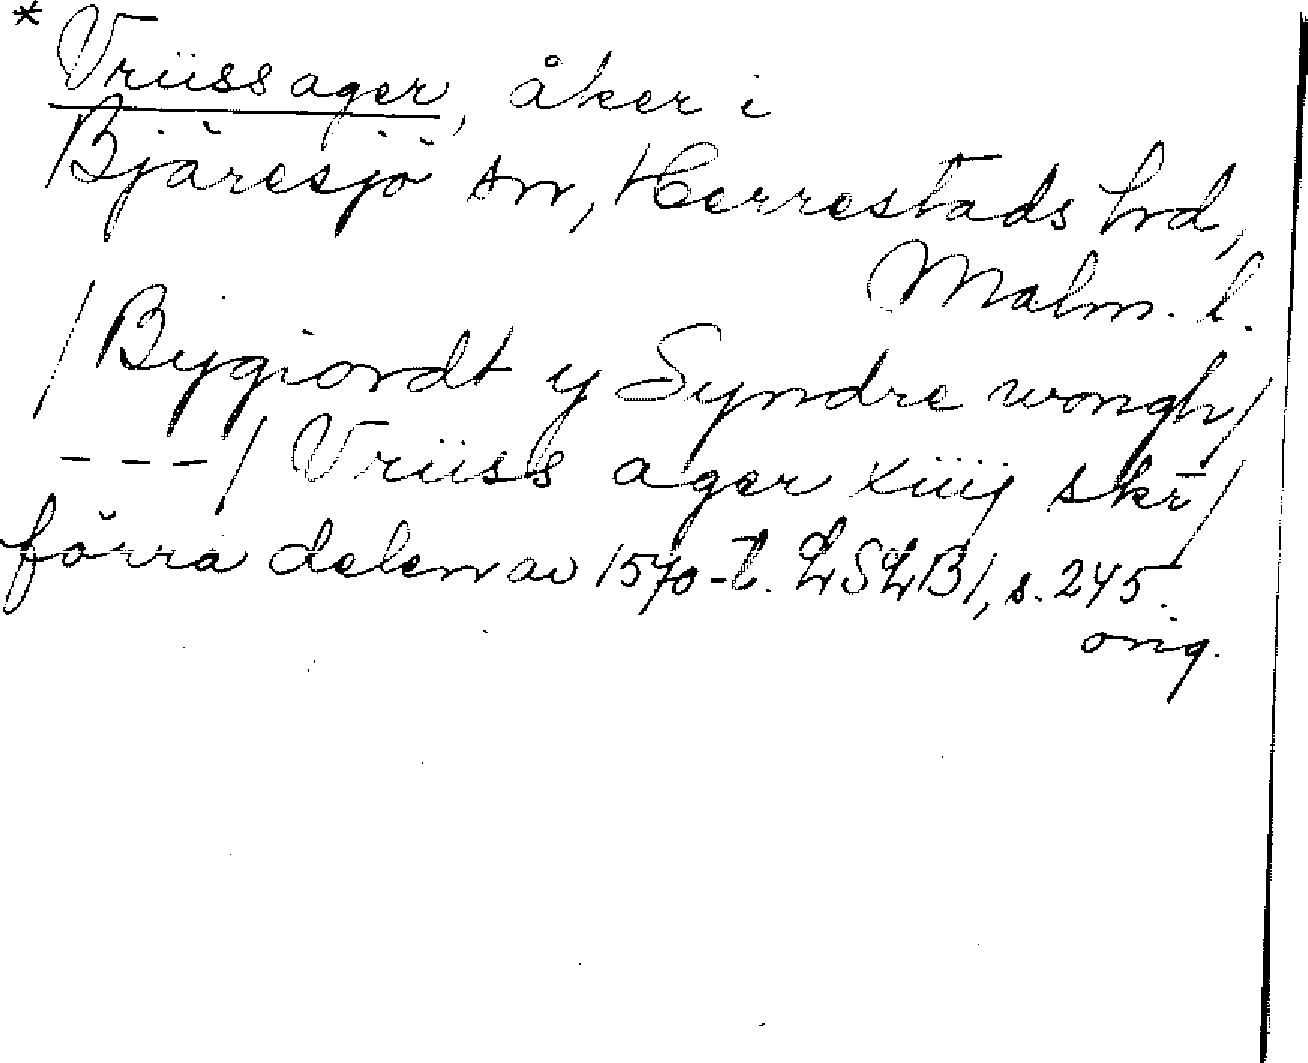 * Vriissager, åker i
Bjäresjö sn, Herrestads hd,
Malm. l.
/ Bygiordt y Syndre wongh /
--- / Vriiss ager xiiij skr /
förra delen av 1570-t. LSLB1, s. 245.
orig.